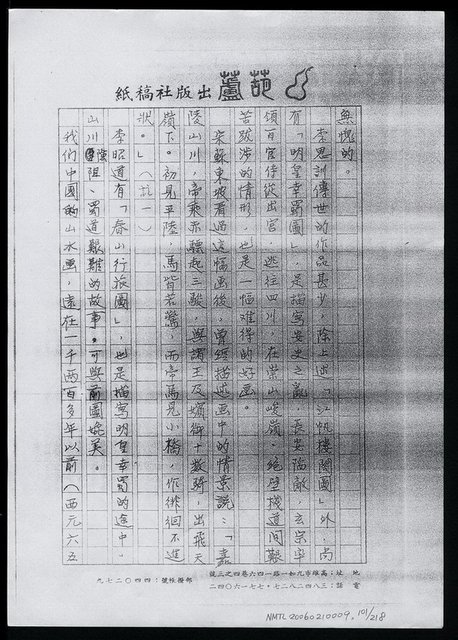 葫蘆出版社稿紙
無愧的。
李思訓傳世的作品甚少，除上述「江帆樓閣圖」外，尚
有「明皇幸蜀圖」，是描寫安史之亂，長安陷敵，玄宗率
領百官侍從出宮，逃往四川，在崇山峻嶺，絕壁棧道間艱
苦跋涉的情形，也是一幅難得的好畫。
宋蘇東坡看過這幅畫後，曾經描述畫中的情景說：「嘉
陵山川，帝乘赤驃起三駿，與諸王及嬪御十數騎，出飛天
嶺下。初見平陵，馬皆若驚，而帝馬見小橋，作徘徊不進
狀。」（註一）
李昭道有「春山行旅圖」，也是描寫明皇幸蜀的途中，
山川險阻、蜀道艱難的故事。可與前圖媲美。
我們中國的山水画，遠在一千兩百多年以前（西元六五
地址：高雄市九如一路一四六巷四之三號
電話：三八四二八二七・七七一六〇四二
郵撥帳號：四四〇二七九
NMTL20060210009. 101/218